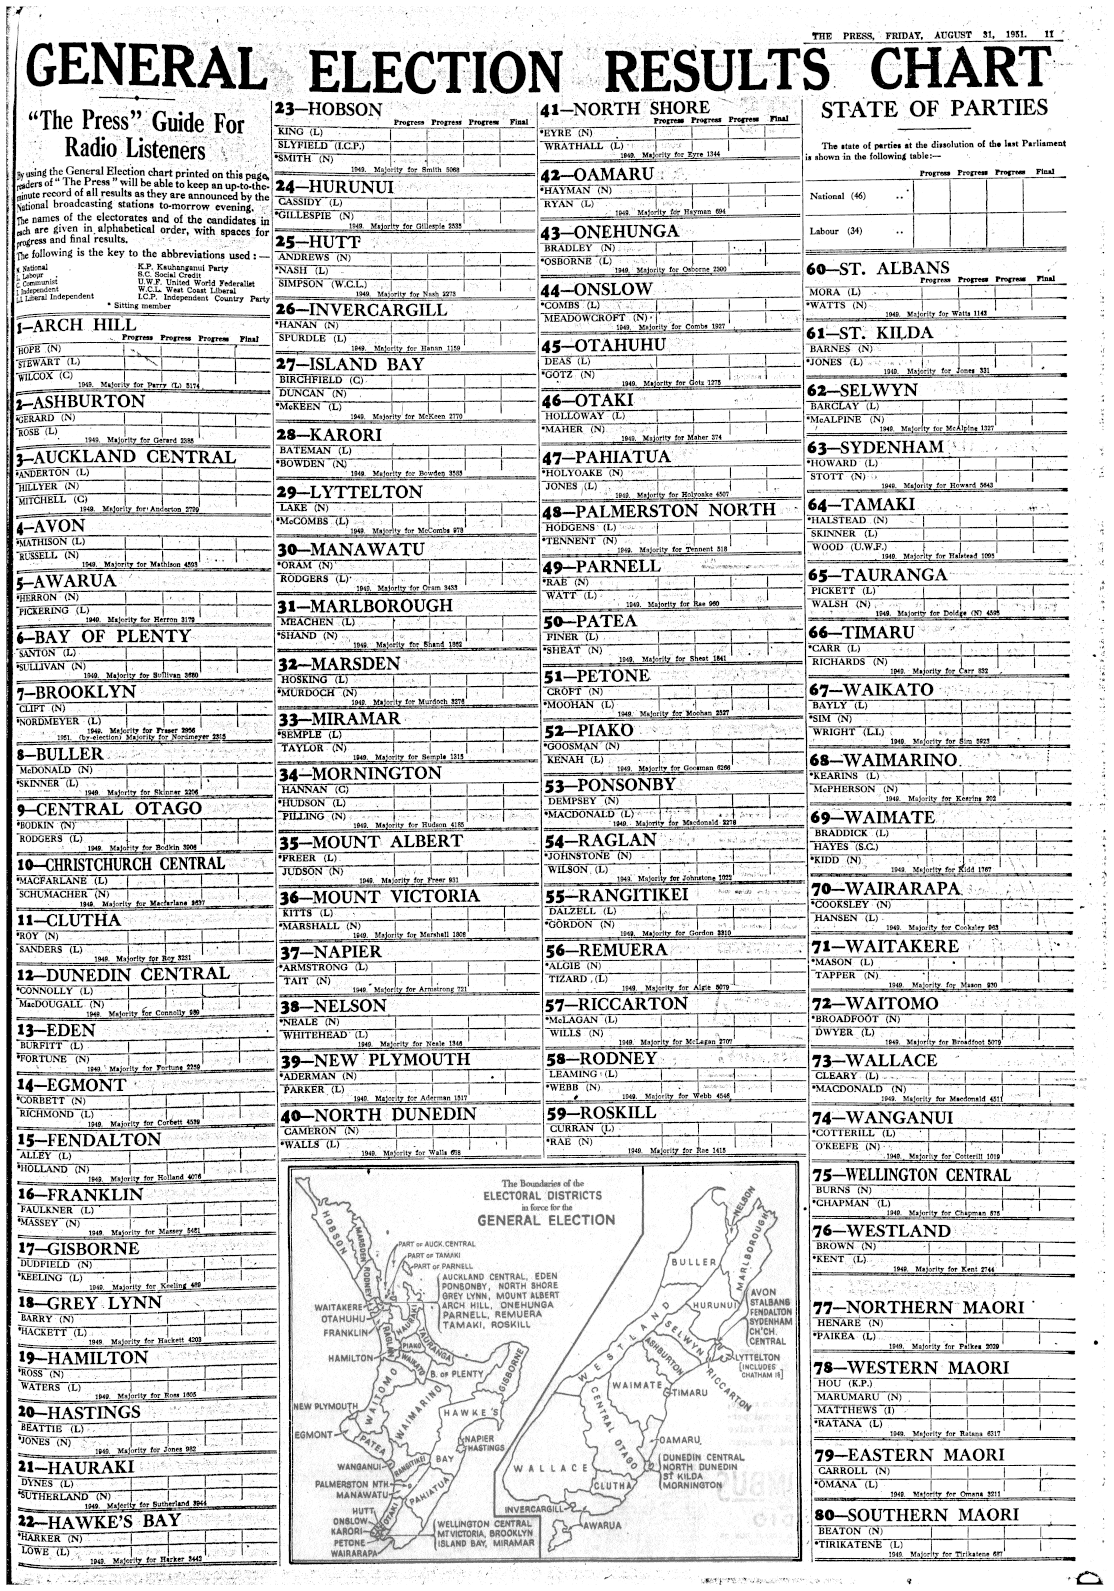 THE PRESS, FRIDAY, AUGUST 31, 1951. 11
GENERAL ELECTION RESULTS CHART
"The Press" Guide For
Radio Listeners
By using the General Election chart printed on this page,
readers of "The Press" will be able to keep an up-to-the-
minute record of all results as they are announced by the
National broadcasting stations to-morrow evening.
The names of the electorates and of the candidates in
each are given in alphabetical order, with spaces for
progress and final results.
The following is the key to the abbreviations used :—
N National
L Labour
C Communist
I Independent
L.I Liberal Independent
K.P. Kauhanganui Party
S.C. Social Credit
U.W.F. United World Federalist
W.C.L. West Coast Liberal
I.C.P. Independent Country Party
* Sitting member
1—ARCH HILL
Progress Progress Progress Final
HOPE (N)
STEWART (L)
WILCOX (C)
1949. Majority for Parry (L) 5174
2—ASHBURTON
*GERARD (N)
ROSE (L)
1949. Majority for Gerard 2385
3—AUCKLAND CENTRAL
*ANDERTON (L)
HILLYER (N)
MITCHELL (C)
1949. Majority for Anderton 2799
4—AVON
*MATHISON (L)
RUSSELL (N)
1949. Majority for Mathison 4593
5—AWARUA
*HERRON (N)
PICKERING (L)
1949. Majority for Herron 3179
6—BAY OF PLENTY
SANTON (L)
*SULLIVAN (N)
1949. Majority for Sullivan 3680
7—BROOKLYN
CLIFT (N)
*NORDMEYER (L)
1949. Majority for Fraser 2956
1951. (by-election) Majority for Nordmeyer 2315
8—BULLER
McDONALD (N)
*SKINNER (L)
1949. Majority for Skinner 2206
9—CENTRAL OTAGO
*BODKIN (N)
RODGERS (L)
1949. Majority for Bodkin 3906
10—CHRISTCHURCH CENTRAL
*MACFARLANE (L)
SCHUMACHER (N)
1949. Majority for Macfarlane 3637
11—CLUTHA
*ROY (N)
SANDERS (L)
1949. Majority for Roy 3251
12—DUNEDIN CENTRAL
*CONNOLLY (L)
MacDOUGALL (N)
1949. Majority for Connolly 989
13—EDEN
BURFITT (L)
*FORTUNE (N)
1949. Majority for Fortune 2259
14—EGMONT
*CORBETT (N)
RICHMOND (L)
1949. Majority for Corbett 4539
15—FENDALTON
ALLEY (L)
*HOLLAND (N)
1949. Majority for Holland 4076
16—FRANKLIN
FAULKNER (L)
*MASSEY (N)
1949. Majority for Massey 5451
17—GISBORNE
DUDFIELD (N)
*KEELING (L)
1949. Majority for Keeling 489
18—GREY LYNN
BARRY (N)
*HACKETT (L)
1949. Majority for Hackett 4203
19—HAMILTON
*ROSS (N)
WATERS (L)
1949. Majority for Ross 1605
20—HASTINGS
BEATTIE (L)
*JONES (N)
1949. Majority for Jones 982
21—HAURAKI
DYNES (L)
*SUTHERLAND (N)
1949. Majority for Sutherland 3944
22—HAWKE'S BAY
*HARKER (N)
LOWE (L)
1949. Majority for Harker 3442
23—HOBSON
Progress Progress Progress Final
KING (L)
SLYFIELD (I.C.P.)
*SMITH (N)
1949. Majority for Smith 5068
24—HURUNUI
CASSIDY (L)
*GILLESPIE (N)
1949. Majority for Gillespie 2535
25—HUTT
ANDREWS (N)
*NASH (L)
SIMPSON (W.C.L.)
1949. Majority for Nash 2273
26—INVERCARGILL
*HANAN (N)
SPURDLE (L)
1949. Majority for Hanan 1159
27—ISLAND BAY
BIRCHFIELD (C)
DUNCAN (N)
*McKEEN (L)
1949. Majority for McKeen 2770
28—KARORI
BATEMAN (L)
*BOWDEN (N)
1949. Majority for Bowden 3583
29—LYTTELTON
LAKE (N)
*McCOMBS (L)
1949. Majority for McCombs 978
30—MANAWATU
*ORAM (N)
RODGERS (L)
1949. Majority for Oram 3433
31—MARLBOROUGH
MEACHEN (L)
*SHAND (N)
1949. Majority for Shand 1862
32—MARSDEN
HOSKING (L)
*MURDOCH (N)
1949. Majority for Murdoch 3276
33—MIRAMAR
*SEMPLE (L)
TAYLOR (N)
1949. Majority for Semple 1315
34—MORNINGTON
HANNAN (C)
*HUDSON (L)
PILLING (N)
1949. Majority for Hudson 4185
35—MOUNT ALBERT
*FREER (L)
JUDSON (N)
1949. Majority for Freer 931
36—MOUNT VICTORIA
KITTS (L)
*MARSHALL (N)
1949. Majority for Marshall 1808
37—NAPIER
*ARMSTRONG (L)
TAIT (N)
1949. Majority for Armstrong 721
38—NELSON
*NEALE (N)
WHITEHEAD (L)
1949. Majority for Neale 1346
39—NEW PLYMOUTH
*ADERMAN (N)
PARKER (L)
1949. Majority for Aderman 1517
40—NORTH DUNEDIN
CAMERON (N)
*WALLS (L)
1949. Majority for Walls 678
41—NORTH SHORE
Progress Progress Progress Final
*EYRE (N)
WRATHALL (L)
1949. Majority for Eyre 1344
42—OAMARU
*HAYMAN (N)
RYAN (L)
1949. Majority for Hayman 694
43—ONEHUNGA
BRADLEY (N)
*OSBORNE (L)
1949. Majority for Osborne 2300
44—ONSLOW
*COMBS (L)
MEADOWCROFT (N)
1949. Majority for Combs 1927
45—OTAHUHU
DEAS (L)
*GOTZ (N)
1949. Majority for Gotz 1275
46—OTAKI
HOLLOWAY (L)
*MAHER (N)
1949. Majority for Maher 374
47—PAHIATUA
*HOLYOAKE (N)
JONES (L)
1949. Majority for Holyoake 4507
48—PALMERSTON NORTH
HODGENS (L)
*TENNENT (N)
1949. Majority for Tennent 518
49—PARNELL
*RAE (N)
WATT (L)
1949. Majority for Rae 960
50—PATEA
FINER (L)
*SHEAT (N)
1949. Majority for Sheat 1841
51—PETONE
CROFT (N)
*MOOHAN (L)
1949. Majority for Moohan 2527
52—PIAKO
*GOOSMAN (N)
KENAH (L)
1949. Majority for Goosman 6266
53—PONSONBY
DEMPSEY (N)
*MACDONALD (L)
1949. Majority for Macdonald 2278
54—RAGLAN
*JOHNSTONE (N)
WILSON (L)
1949. Majority for Johnstone 1022
55—RANGITIKEI
DALZELL (L)
*GORDON (N)
1949. Majority for Gordon 3310
56—REMUERA
*ALGIE (N)
TIZARD (L)
1949. Majority for Algie 5079
57—RICCARTON
*McLAGAN (L)
WILLS (N)
1949. Majority for McLagan 2707
58—RODNEY
LEAMING (L)
*WEBB (N)
1949. Majority for Webb 4546
59—ROSKILL
CURRAN (L)
*RAE (N)
1949. Majority for Rae 1415
STATE OF PARTIES
The state of parties at the dissolution of the last Parliament
is shown in the following table:—
Progress Progress Progress Final
National (46) ..
Labour (34) ..
60—ST. ALBANS
Progress Progress Progress Final
MORA (L)
*WATTS (N)
1949. Majority for Watts 1143
61—ST. KILDA
BARNES (N)
*JONES (L)
1949. Majority for Jones 331
62—SELWYN
BARCLAY (L)
*McALPINE (N)
1949. Majority for McAlpine 1327
63—SYDENHAM
*HOWARD (L)
STOTT (N)
1949. Majority for Howard 5643
64—TAMAKI
*HALSTEAD (N)
SKINNER (L)
WOOD (U.W.F.)
1949. Majority for Halstead 1095
65—TAURANGA
PICKETT (L)
WALSH (N)
1949. Majority for Doidge (N) 4595
66—TIMARU
*CARR (L)
RICHARDS (N)
1949. Majority for Carr 832
67—WAIKATO
BAYLY (L)
*SIM (N)
WRIGHT (L.I.)
1949. Majority for Sim 5923
68—WAIMARINO
*KEARINS (L)
McPHERSON (N)
1949. Majority for Kearins 202
69—WAIMATE
BRADDICK (L)
HAYES (S.C.)
*KIDD (N)
1949. Majority for Kidd 1767
70—WAIRARAPA
*COOKSLEY (N)
HANSEN (L)
1949. Majority for Cooksley 963
71—WAITAKERE
*MASON (L)
TAPPER (N)
1949. Majority for Mason 930
72—WAITOMO
*BROADFOOT (N)
DWYER (L)
1949. Majority for Broadfoot 5079
73—WALLACE
CLEARY (L)
*MACDONALD (N)
1949. Majority for Macdonald 4511
74—WANGANUI
*COTTERILL (L)
O'KEEFE (N)
1949. Majority for Cotterill 1019
75—WELLINGTON CENTRAL
BURNS (N)
*CHAPMAN (L)
1949. Majority for Chapman 575
76—WESTLAND
BROWN (N)
*KENT (L)
1949. Majority for Kent 2744
77—NORTHERN MAORI
HENARE (N)
*PAIKEA (L)
1949. Majority for Paikea 2029
78—WESTERN MAORI
HOU (K.P.)
MARUMARU (N)
MATTHEWS (I)
*RATANA (L)
1949. Majority for Ratana 6317
79—EASTERN MAORI
CARROLL (N)
*OMANA (L)
1949. Majority for Omana 3211
80—SOUTHERN MAORI
BEATON (N)
*TIRIKATENE (L)
1949. Majority for Tirikatene 687
The Boundaries of the
ELECTORAL DISTRICTS
in force for the
GENERAL ELECTION
HOBSON
MARSDEN
RODNEY
PART OF AUCK. CENTRAL
PART OF TAMAKI
PART OF PARNELL
AUCKLAND CENTRAL, EDEN
PONSONBY, NORTH SHORE
GREY LYNN, MOUNT ALBERT
ARCH HILL, ONEHUNGA
PARNELL, REMUERA
TAMAKI, ROSKILL
WAITAKERE
OTAHUHU
FRANKLIN
HAURAKI
TAURANGA
RAGLAN
PIAKO
HAMILTON
WAIKATO
B. OF PLENTY
GISBORNE
WAITOMO
WAIMARINO
NEW PLYMOUTH
HAWKE'S
BAY
EGMONT
PATEA
NAPIER
HASTINGS
WANGANUI
RANGITIKEI
PALMERSTON NTH
MANAWATU
PAHIATUA
OTAKI
HUTT
ONSLOW
KARORI
PETONE
WAIRARAPA
WELLINGTON CENTRAL
MT VICTORIA, BROOKLYN
ISLAND BAY, MIRAMAR
NELSON
MARLBOROUGH
BULLER
HURUNUI
AVON
ST ALBANS
FENDALTON
SYDENHAM
CH'CH.
CENTRAL
WESTLAND
SELWYN
ASHBURTON
LYTTELTON
[INCLUDES
CHATHAM IS]
RICCARTON
WAIMATE
TIMARU
CENTRAL OTAGO
OAMARU
WALLACE
DUNEDIN CENTRAL
NORTH DUNEDIN
ST KILDA
MORNINGTON
CLUTHA
INVERCARGILL
AWARUA